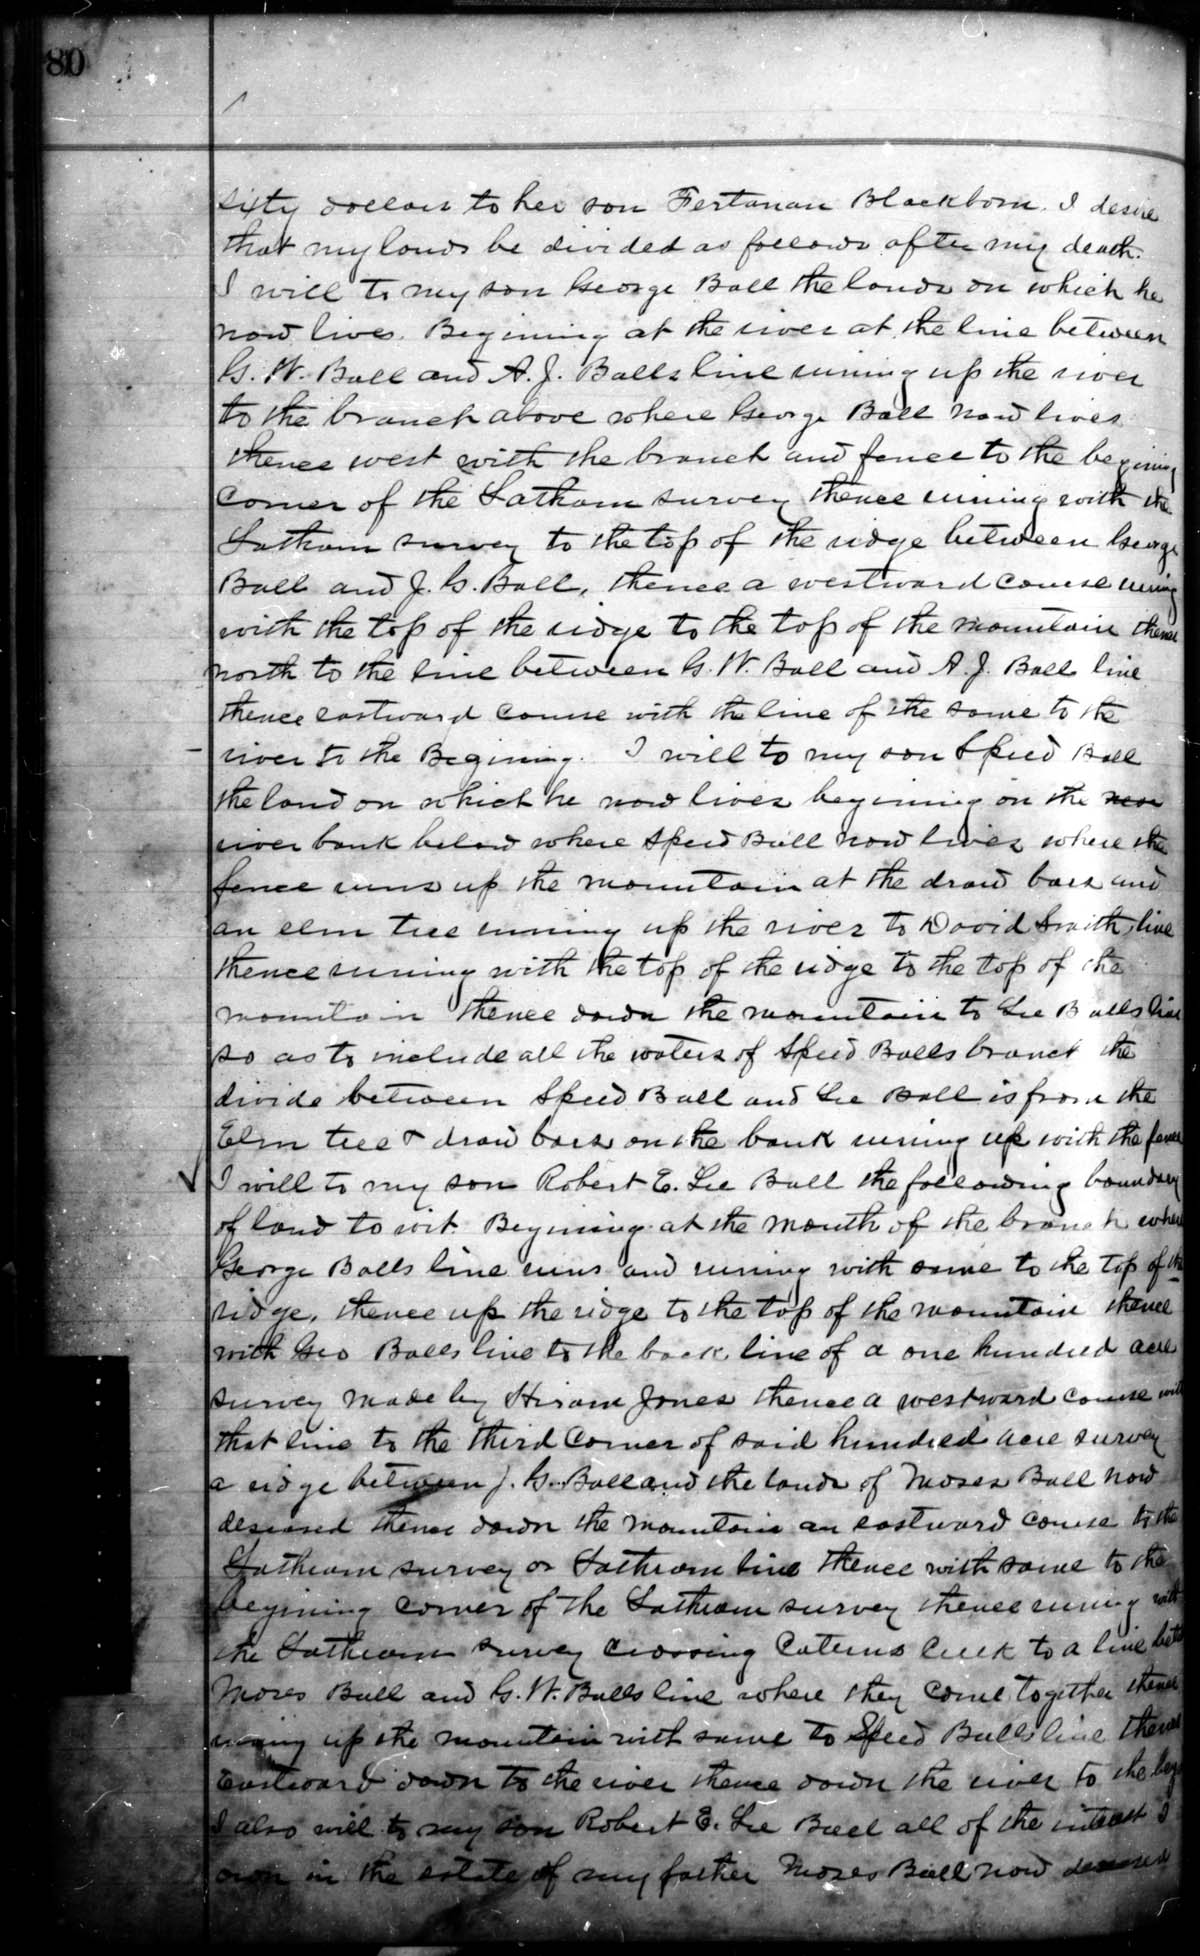 80
sixty dollars to her son Fertanan Blackborn. I desire
that my lands be divided as follows after my death.
I will to my son George Ball the lands on which he
now lives. Begining at the river at the line between
G. W. Ball and A. J. Balls line runing up the river
to the branch above where George Ball now lives
thence west with the branch and fence to the begining
corner of the Latham survey thence runing with the
Latham survey to the top of the ridge between George
Ball and J. G. Ball, thence a westward course runing
with the top of the ridge to the top of the mountain thence
north to the line between G. W. Ball and A. J. Ball line
thence eastward course with the line of the same to the
river to the Begining. I will to my son Speed Ball
the land on which he now lives begining on the
river bank below where Speed Ball now lives where the
fence runs up the mountain at the draw bars and
an elm tree runing up the river to David Smith line
thence runing with the top of the ridge to the top of the
mountain thence down the mountain to Lee Balls line
so as to include all the waters of Speed Balls branch the
divide between Speed Ball and Lee Ball is from the
Elm tree & draw bars on the bank runing up with the fence
I will to my son Robert E. Lee Ball the following boundary
of land to wit. Begining at the mouth of the branch where
George Balls line runs and runing with same to the top of the
ridge, thence up the ridge to the top of the mountain thence
with Geo Balls line to the back line of a one hundred acre
survey made by Hiram Jones thence a westward course with
that line to the third corner of said hundred acre survey
a ridge between J. G. Ball and the lands of Moses Ball now
deseased thence down the mountain an eastward course to the
Lathram survey or Lathram line thence with same to the
begining corner of the Lathram survey thence runing with
the Lathram survey crossing Caterns creek to a line
Moses Ball and G. W. Balls line where they come together thence
runing up the mountain with same to Speed Balls line thence
Eastward down to the river thence down the river to the beg
I also will to my son Robert E. Lee Ball all of the interest I
own in the estate of my father Moses Ball now deseased